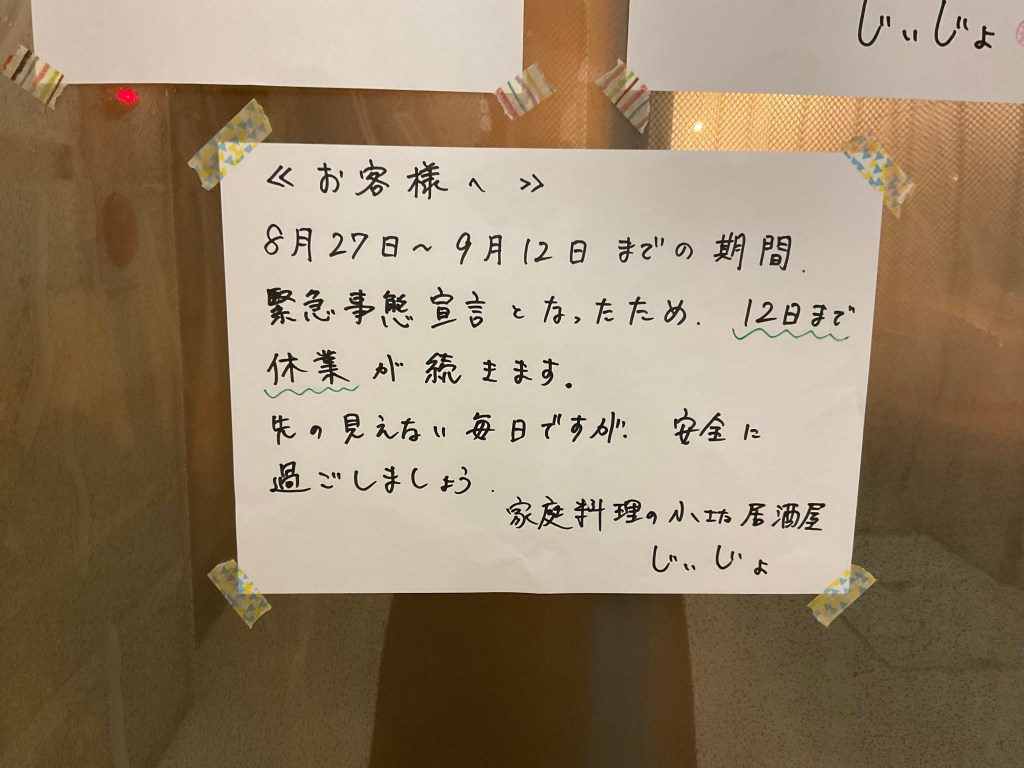 じぃじょ
≪お客様へ≫
8月27日～9月12日までの期間、
緊急事態宣言となったため、12日まで
休業が続きます。
先の見えない毎日ですが、安全に
過ごしましょう。
家庭料理の小坊居酒屋
じぃじょ